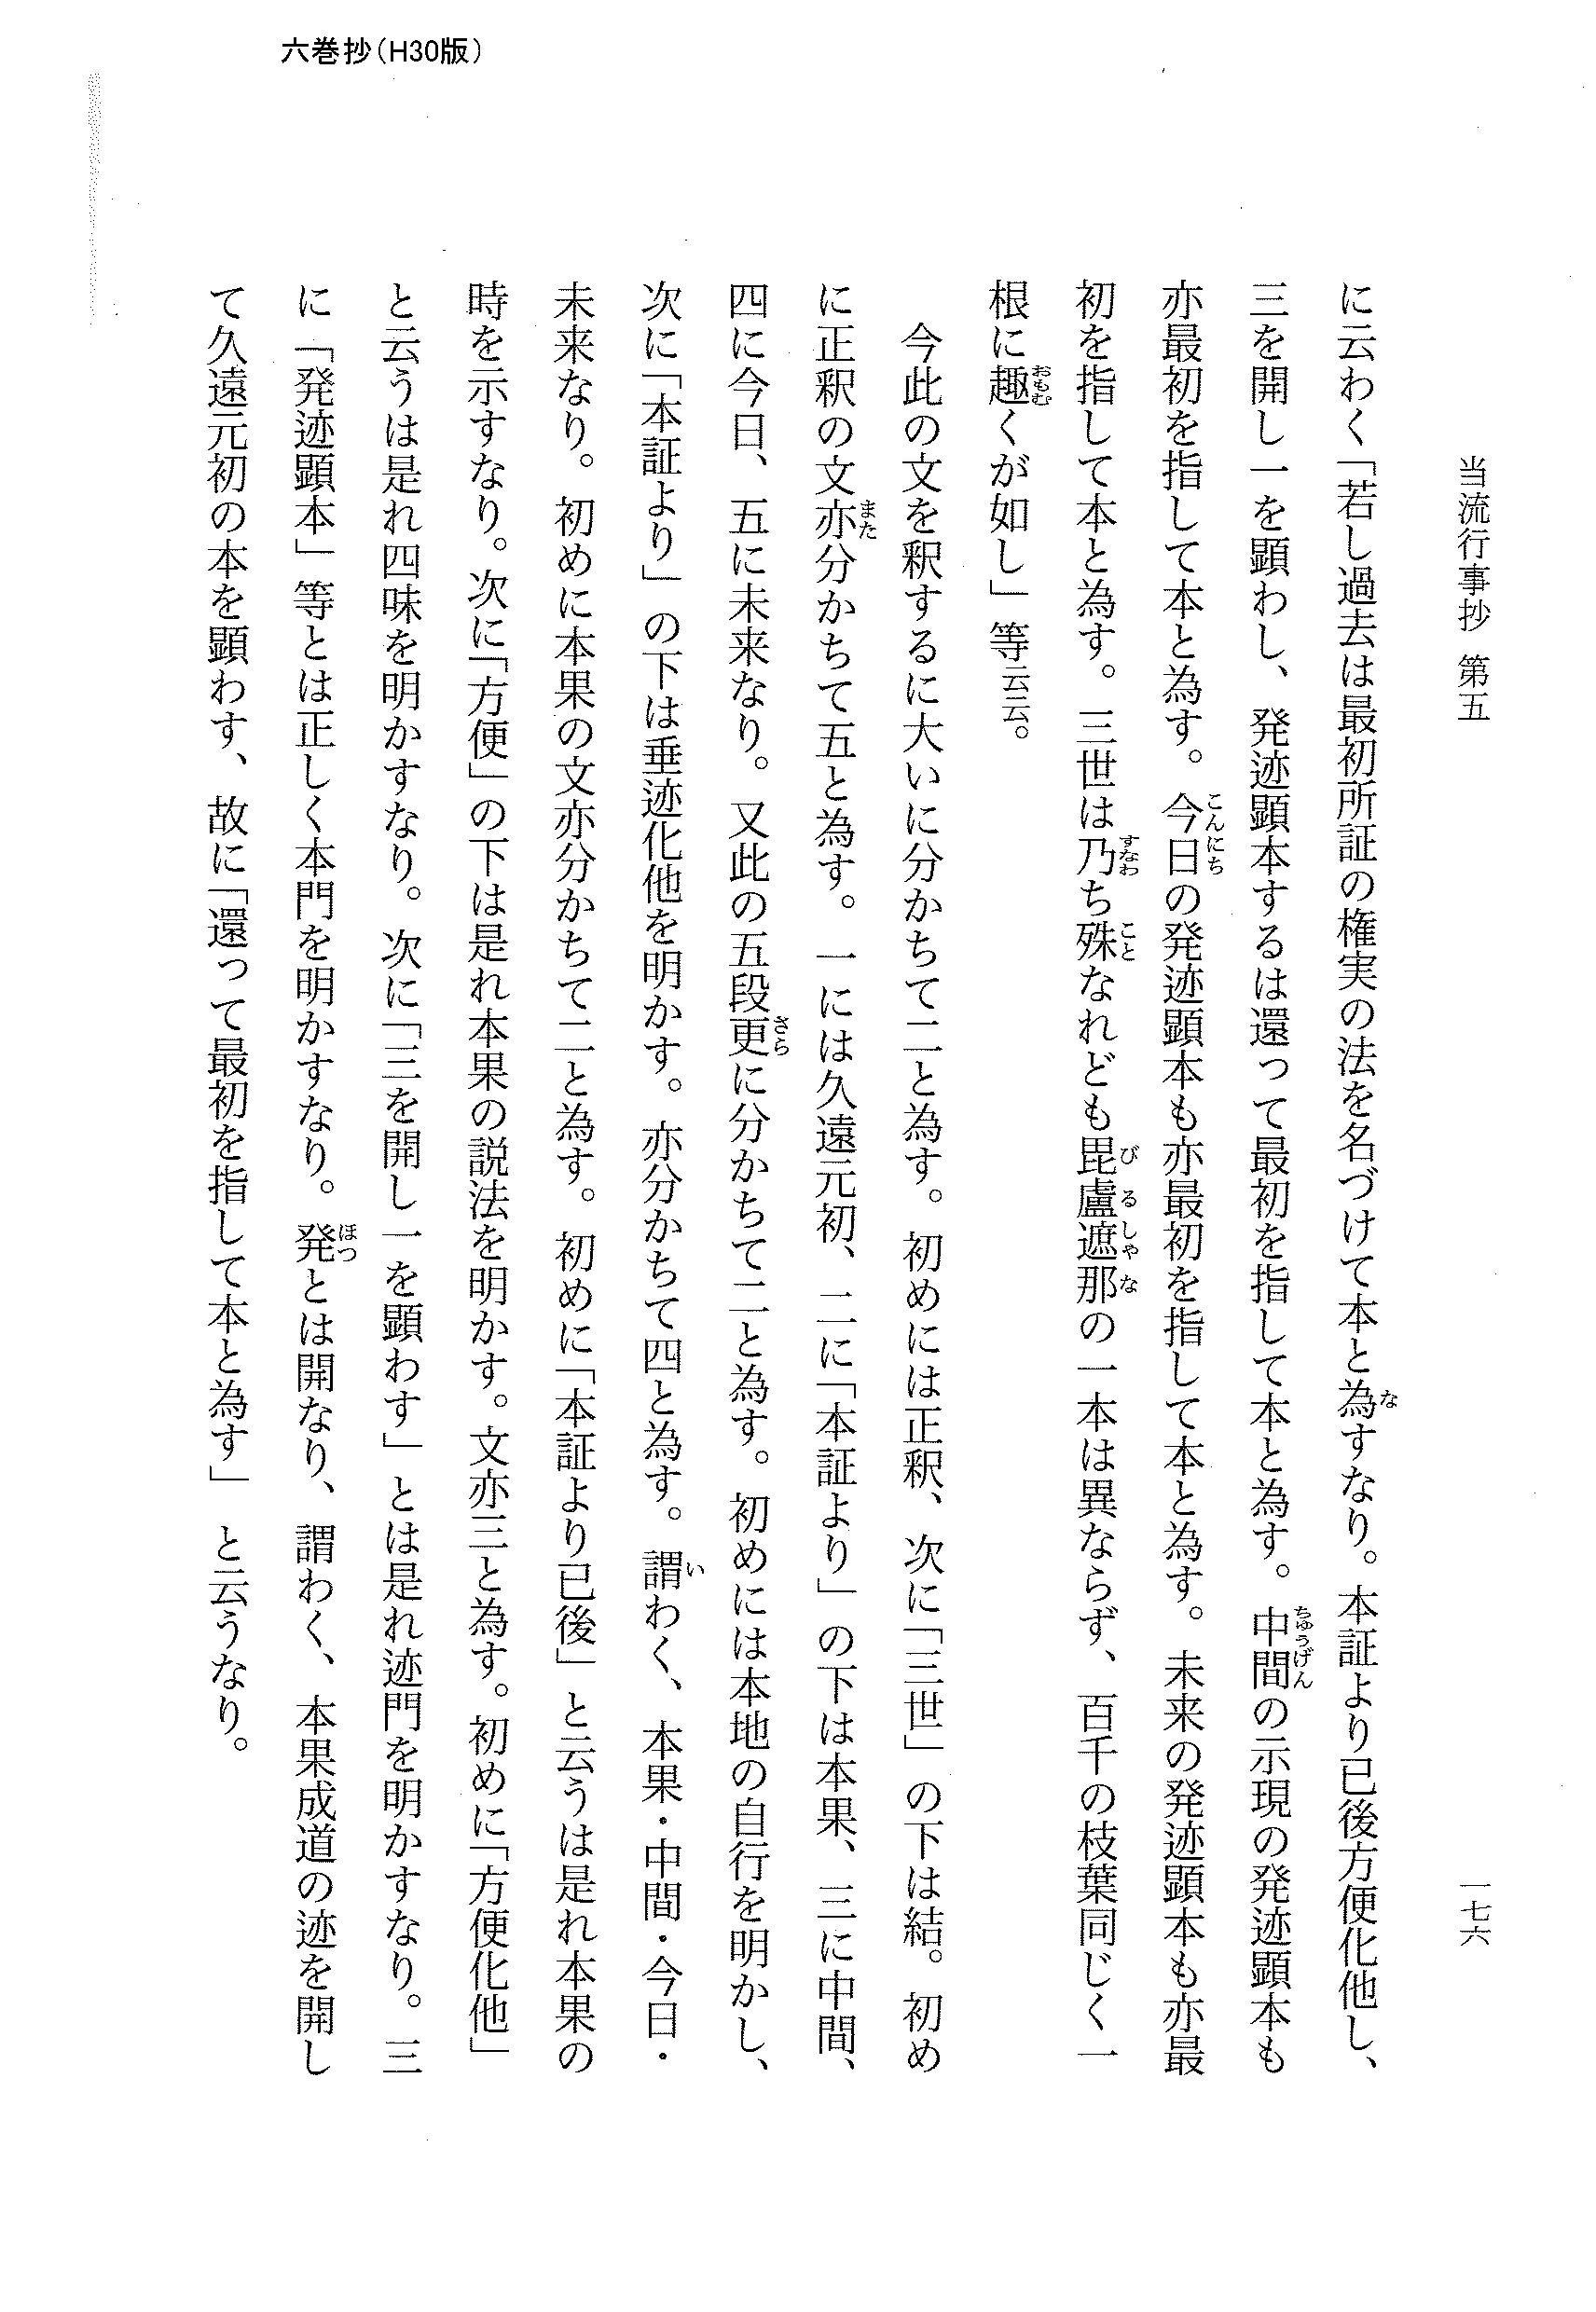 六巻抄（H30版）
当流行事抄 第五
一七六
に云わく「若し過去は最初所証の権実の法を名づけて本と為すなり。本証より已後方便化他し、
三を開し一を顕わし、発迹顕本するは還って最初を指して本と為す。中間の示現の発迹顕本も
亦最初を指して本と為す。今日の発迹顕本も亦最初を指して本と為す。未来の発迹顕本も亦最
初を指して本と為す。三世は乃ち殊なれども毘盧遮那の一本は異ならず、百千の枝葉同じく一
根に趣くが如し」等云云。
今此の文を釈するに大いに分かちて二と為す。初めには正釈、次に「三世」の下は結。初め
に正釈の文亦分かちて五と為す。一には久遠元初、二に「本証より」の下は本果、三に中間、
四に今日、五に未来なり。又此の五段更に分かちて二と為す。初めには本地の自行を明かし、
次に「本証より」の下は垂迹化他を明かす。亦分かちて四と為す。謂わく、本果・中間・今日・
未来なり。初めに本果の文亦分かちて二と為す。初めに「本証より已後」と云うは是れ本果の
時を示すなり。次に「方便」の下は是れ本果の説法を明かす。文亦三と為す。初めに「方便化他」
と云うは是れ四味を明かすなり。次に「三を開し一を顕わす」とは是れ迹門を明かすなり。三
に「発迹顕本」等とは正しく本門を明かすなり。発とは開なり、謂わく、本果成道の迹を開し
て久遠元初の本を顕わす、故に「還って最初を指して本と為す」と云うなり。